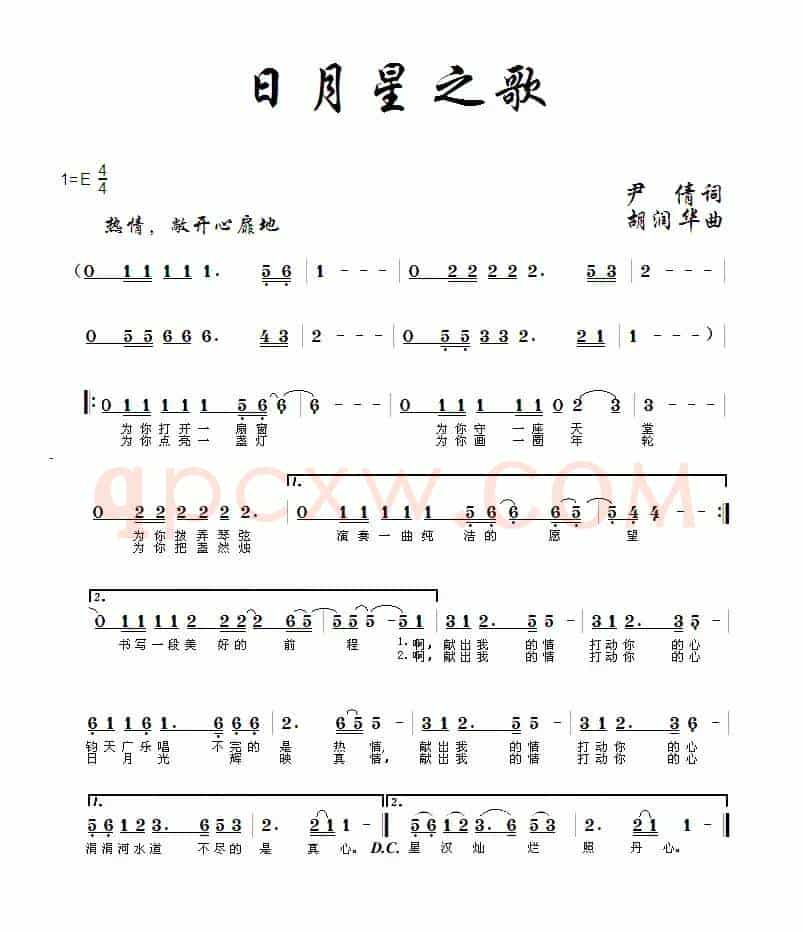 日月星之歌
1=E 4/4
尹 倩词
热情，敞开心扉地
胡润华曲
（0 1 1 1 1 1． 5 6 | 1 - - - | 0 2 2 2 2 2． 5 3 | 2 - - - |
0 5 5 6 6 6． 4 3 | 2 - - - | 0 5 5 3 3 2． 2 1 | 1 - - - ）
|: 0 1 1 1 1 1 5 6 6 | 6 - - - | 0 1 1 1 1 1 1 0 2 3 | 3 - - - |
为你打开一 扇窗 为你守一座 天 堂
为你点亮一 盏灯 为你画一圈 年 轮
qpcxw.COM
1.
0 2 2 2 2 2 2． | 0 1 1 1 1 1 5 6 6 6 5 | 5 4 4 - - :|
为你拨弄琴弦 演奏一曲纯 洁的 愿 望
为你把盏然烛
2.
0 1 1 1 1 2 2 2 6 5 | 5 5 5 - 5 1 | 3 1 2． 5 5 | 3 1 2． 3 5 - |
书写一段美 好的 前 程 1.啊，献出我 的情 打动你 的心
2.啊，献出我 的情 打动你 的心
6 1 1 6 1． 5 6 6 | 2． 3 5 5 - | 3 1 2． 5 5 | 3 1 2． 3 6 - |
钧天广乐唱 不完的 是 热 情, 献出我 的情 打动你 的心
日 月 光 辉 映 真 情，献出我 的情 打动你 的心
1. 2.
5 6 1 2 3． 6 5 3 | 2． 2 1 1 - | 5 6 1 2 3． 6 5 3 | 2． 2 1 1 - |
涓涓河水道 不尽的 是 真 心。 D.C. 星 汉 灿 烂 照 丹心。